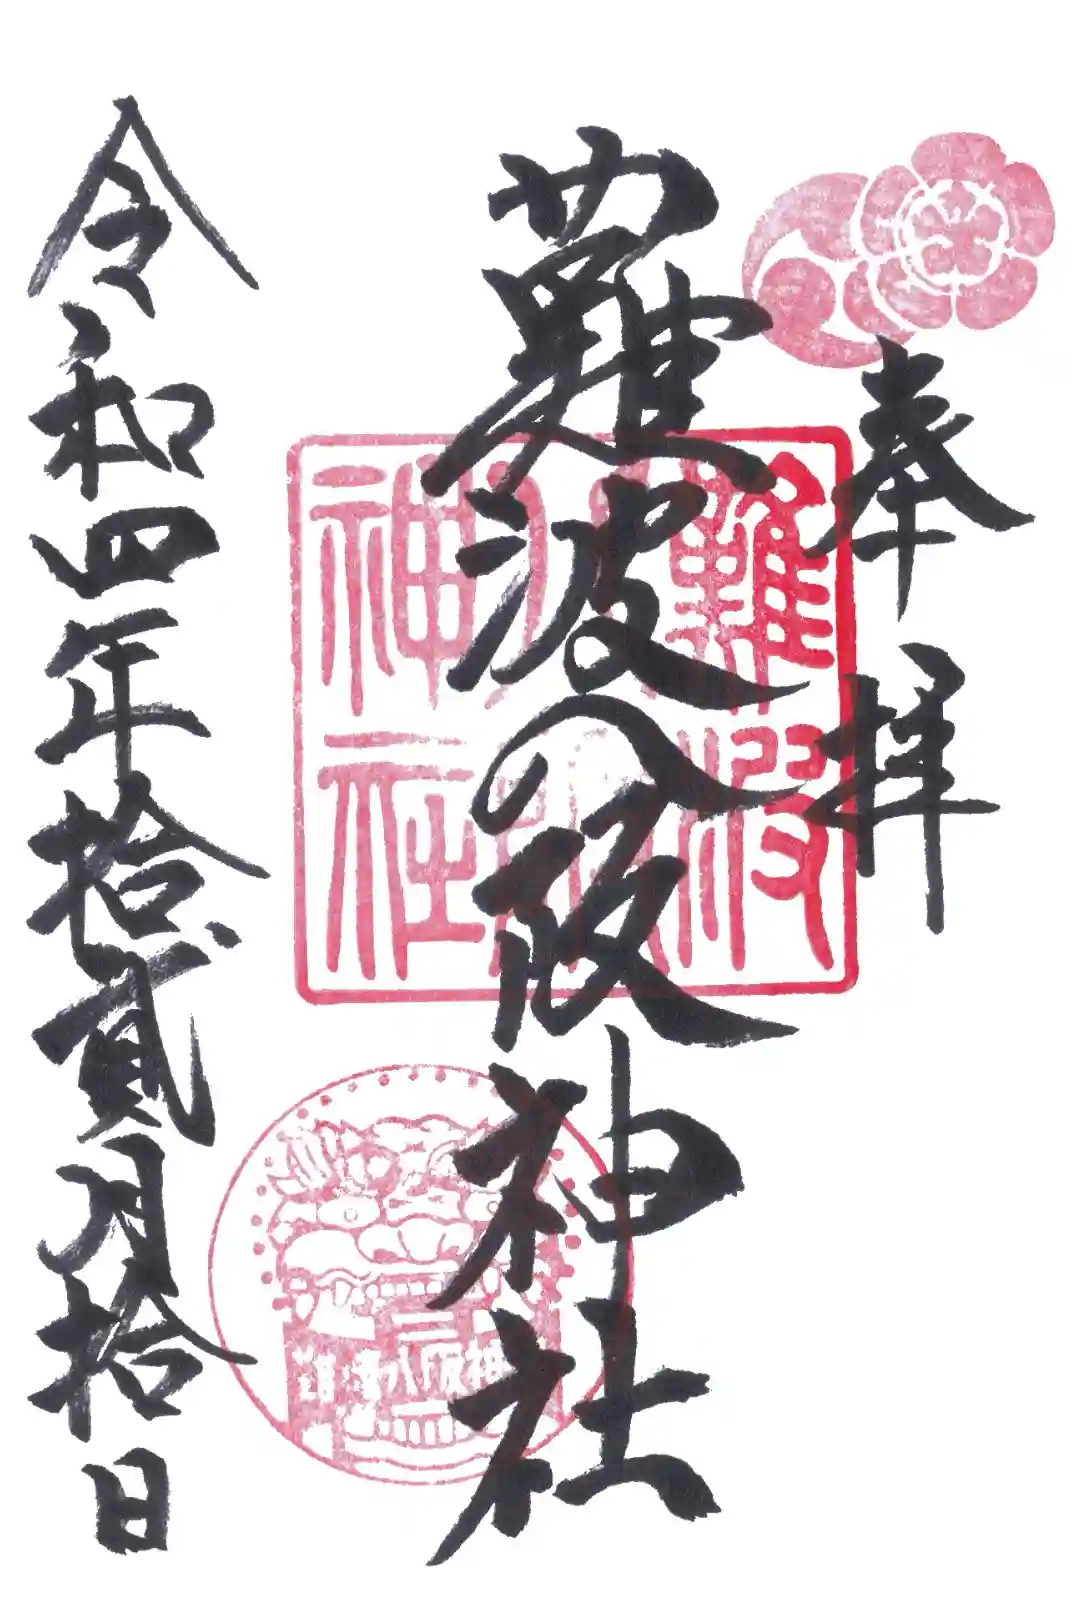 奉拝
難波八阪神社
令和四年拾貳月拾日
難波
八阪
神社